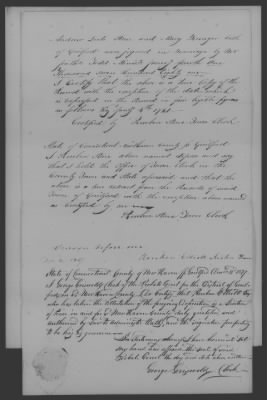 Andrew Lute Stone and Mary Kezunger both
of Guilford were joined in marriage by Mr
Jonathan Todd Minister January fourth One
Thousand Seven Hundred Eighty one
I Certify that the above is a true Copy of the
Record with the exception of the date which
is expressed in the Record in four legible figures
as follows viz January 4th 1781
Certified by Reuben Stone Town Clerk
State of Connecticut New Haven County ss Guilford
I Reuben Stone above named depose and say
that I hold the Office of Town Clerk in the
County Town and State aforesaid and that the
above is a true extract from the Records of said
Town of Guilford with the exception above named
as Certified by me
Reuben Stone Town Clerk
Sworn before me
Reuben Elliott Justice Peace
State of Connecticut County of New Haven ss Guilford
I George Griswold Clerk of the Probate Court for the District of Guilford
in and for New Haven County do Certify that Reuben Elliott Esq
who has taken the Attestation of the foregoing deposition is a Justice
of Peace in and for New Haven County duly qualified and
authorised by Law to administer Oaths, and the signature purporting
to be his is genuine
In testimony whereof I have hereunto set
my hand and affixed the seal of said
Probate Court the day and date above written
George Griswold Clerk